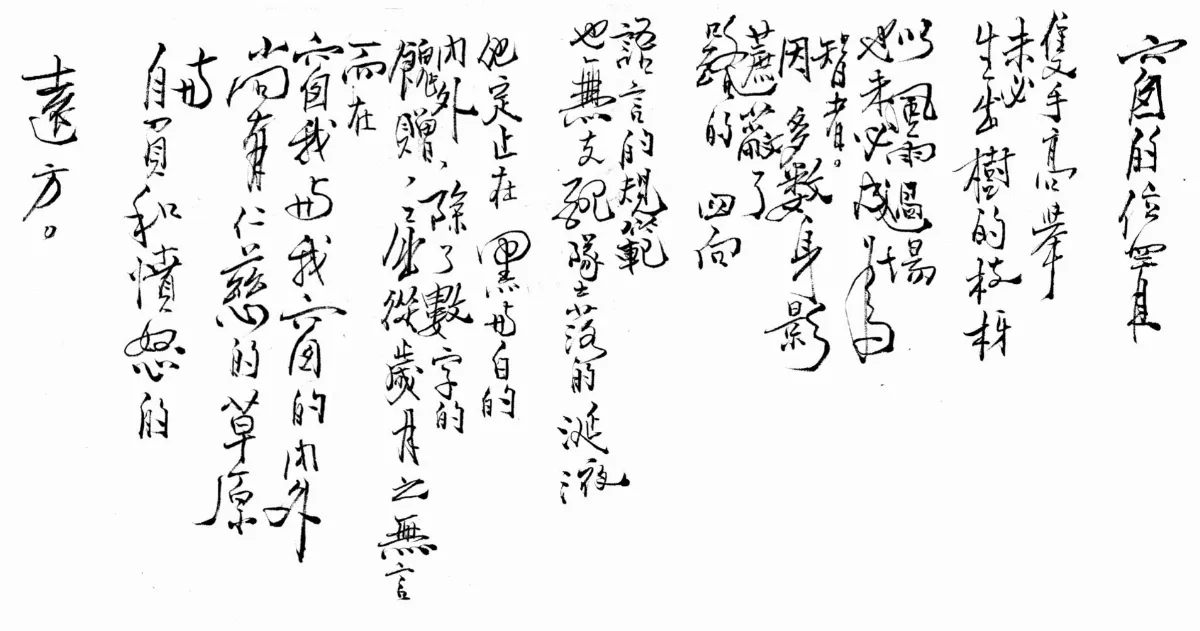 窗的位置
隻手高舉
未必
生出樹的枝枒
以風雨過場
也未必成為
智者。
因多數身影
遮蔽了
的 四向
語言的規範
也無支配墜落的涎液
定止在 黑與白的
內外,除了數字的
饋贈、屈從歲月之無言
而在
窗我與我窗的內外
尚有仁慈的草原
與
自負和憤怒的
遠方。